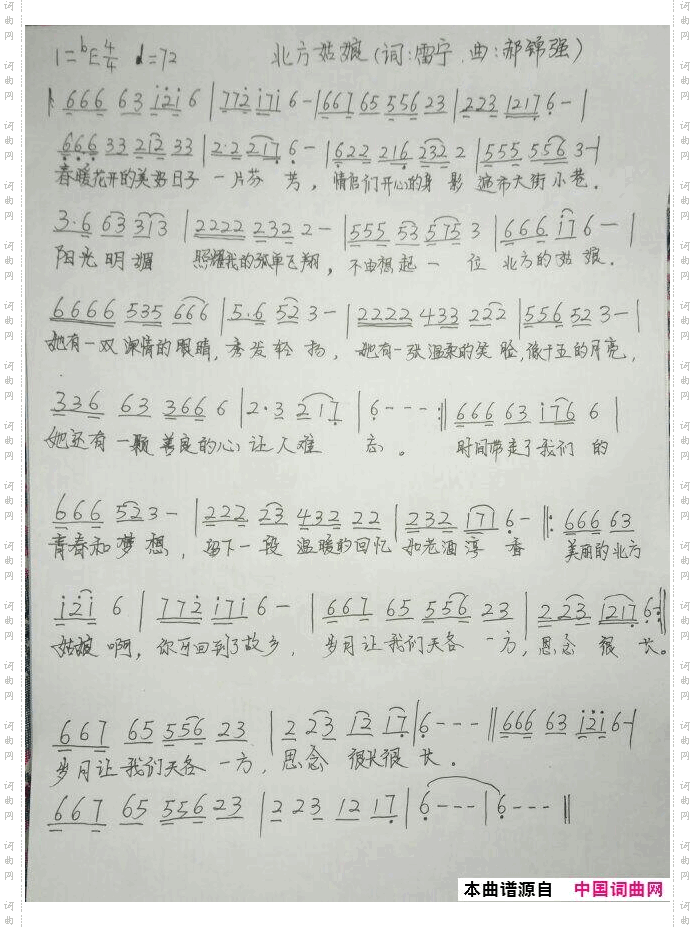 1=ᵇE 4/4 ♩=72 北方姑娘(词:雷宁 曲:郝锦强)
666 63 i2i 6 | 772 i7i 6 - | 667 65 556 23 | 223 1217 6 - |
666 33 212 33 | 2·2 217 6 - | 622 216 232 2 | 555 556 3 - |
春暖花开的美好日子 一片芬 芳，情侣们开心的身 影 遍布大街小巷.
3·6 63 313 | 2222 232 2 - | 555 53 575 3 | 666 i7 6 - |
阳光明媚 照耀我的孤单飞翔，不由想起一 位 北方的姑娘.
6666 535 666 | 5·6 52 3 - | 2222 433 222 | 556 52 3 - |
她有一双深情的眼睛,秀发轻 扬，她有一张温柔的笑脸,像十五的月亮,
336 63 366 6 | 2·3 217 | 6 - - - :|| 666 63 i76 6 |
她还有一颗善良的心让人难 忘。 时间带走了我们 的
666 52 3 - | 222 23 432 22 | 232 171 6 - ||: 666 63
青春和梦想，留下一段温暖的回忆 如老酒淳香 美丽的北方
i2i 6 | 772 i7i 6 - | 667 65 556 23 | 223 1217 6 :||
姑娘啊，你可回到了故乡，岁月让我们天各一方，思念很长。
667 65 556 23 | 2 23 12 17 | 6 - - - || 666 63 i2i 6 - |
岁月让我们天各一方，思念 很长很长.
667 65 556 23 | 2 23 12 17 | 6 - - - | 6 - - - ||
本曲谱源自 中国词曲网